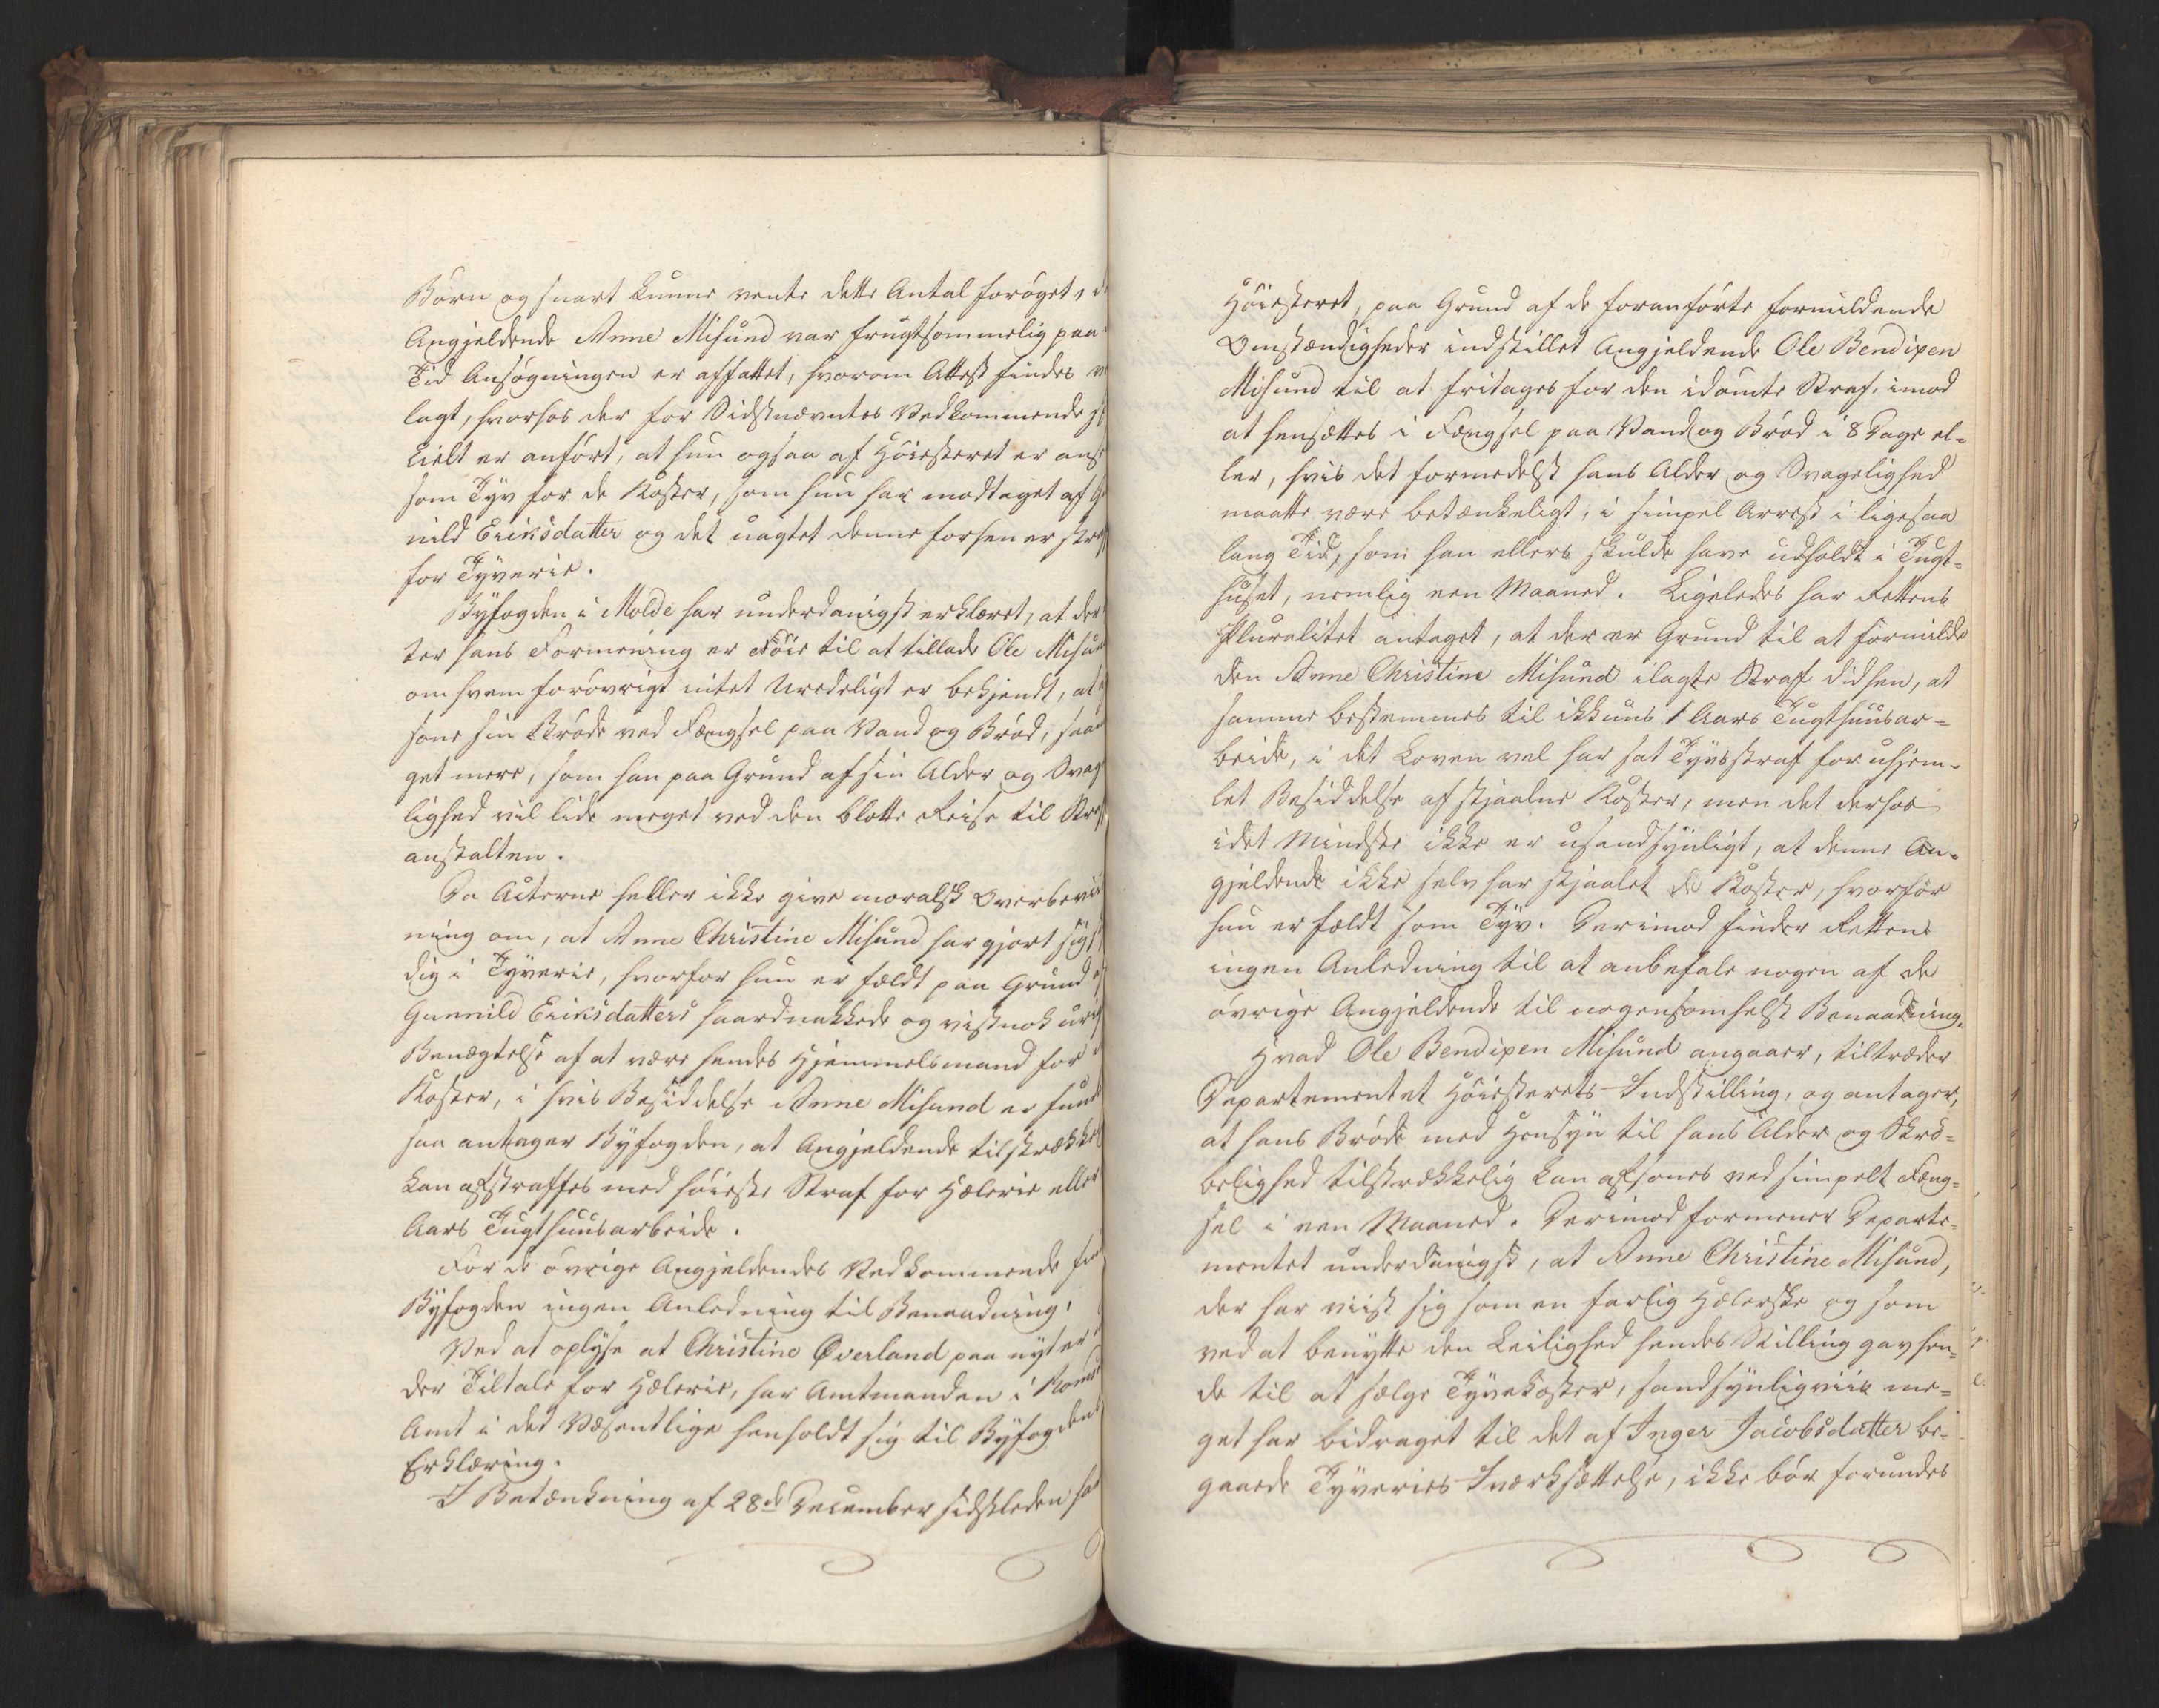 Børn og snart kunne vente dette Antal forøget, d
Angjeldende Anne Misund var frugtsommelig paa
Tid Ansøgningen er affattet, hvorom Attest findes v
lagt, hvorhos der for Sidstnævntes Vedkommende s
cielt er anført, at hun ogsaa af Høiesteret er ans
som Tyv for de Koster, som hun har modtaget af G
nild Eriksdatter og det uagtet denne forhen er straf
for Tyverie.
Byfogden i Molde har underdanigst erklæret, at der
ter hans Formening er Føie til at tillade Ole Misun
om hvem forøvrigt intet Uredeligt er bekjendt, at
sone sin Brøde ved Fængsel paa Vand og Brød, saa
get mere, som han paa Grund af sin Alder og Svag
lighed vil lide meget ved den blotte Reise til Straf
anstalten.
Da Acterne heller ikke give moralsk Overbevis
ning om, at Anne Christine Misund har gjort sig s
dig i Tyverie, hvorfor hun er fældt paa Grund af
Gunnild Eriksdatters haardnakkede og vistnok urig
Benægtelse af at være hendes Hjemmelsmand for d
Koster, i hvis Besiddelse Anne Misund er fund
saa antager Byfogden, at Angjeldende tilstrækkel
kan afstraffes med høieste Straf for Hælerie eller
Aars Tugthuusarbeide.
For de øvrige Angjeldendes Vedkommende fin
Byfogden ingen Anledning til Benaadning.
Ved at oplyse at Christine Øverland paa nyt er
der Tiltale for Hælerie, har Amtmanden i Roms
Amt i det Væsentlige henholdt sig til Byfogdens
Erklæring.
I Betænkning af 28de December sidstleden har
Høiesteret, paa Grund af de foranførte formildende
Omstændigheder indstillet Angjeldende Ole Bendixen
Misund til at fritages for den idømte Straf, imod
at hensættes i Fængsel paa Vand og Brød i 8 Dage el-
ler, hvis det formedelst hans Alder og Svagelighed
maatte være betænkeligt, i simpel Arrest i ligesaa
lang Tid, som han ellers skulde have udholdt i Tugt-
huset, nemlig een Maaned. Ligeledes har Rettens
Pluralitet antaget, at der er Grund til at formilde
den Anne Christine Misund ilagte Straf didhen, at
samme bestemmes til ikkuns 1 Aars Tugthuusar-
beide, i det Loven vel har sat Tyvsstraf for uhjem-
let Besiddelse af stjaalne Koster, men det derhos
idet Mindste ikke er usandsynligt, at denne An-
gjeldende ikke selv har stjaalet de Koster, hvorfor
hun er fældt som Tyv. Derimod finder Retten
ingen Anledning til at anbefale nogen af de
øvrige Angjeldende til nogensomhelst Benaadning.
Hvad Ole Bendixen Misund angaaer, tiltræder
Departementet Høiesterets Indstilling, og antager,
at hans Brøde med Hensyn til hans Alder og Skrø-
belighed tilstrækkelig kan afsones ved simpelt Fæng-
sel i een Maaned. Derimod formener Departe-
mentet underdanigst, at Anne Christine Misund,
der har viist sig som en farlig Hælerske og som
ved at benytte den Leilighed hendes Stilling gav hen-
de til at sælge Tyvekoster, sandsynligviis me-
get har bidraget til det af Inger Jacobsdatter be-
gaaede Tyveries Iværksættelse, ikke bør forundes